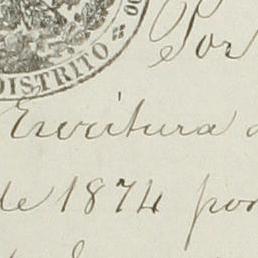 DISTRITO
Por
Escritura a
de 1874 por